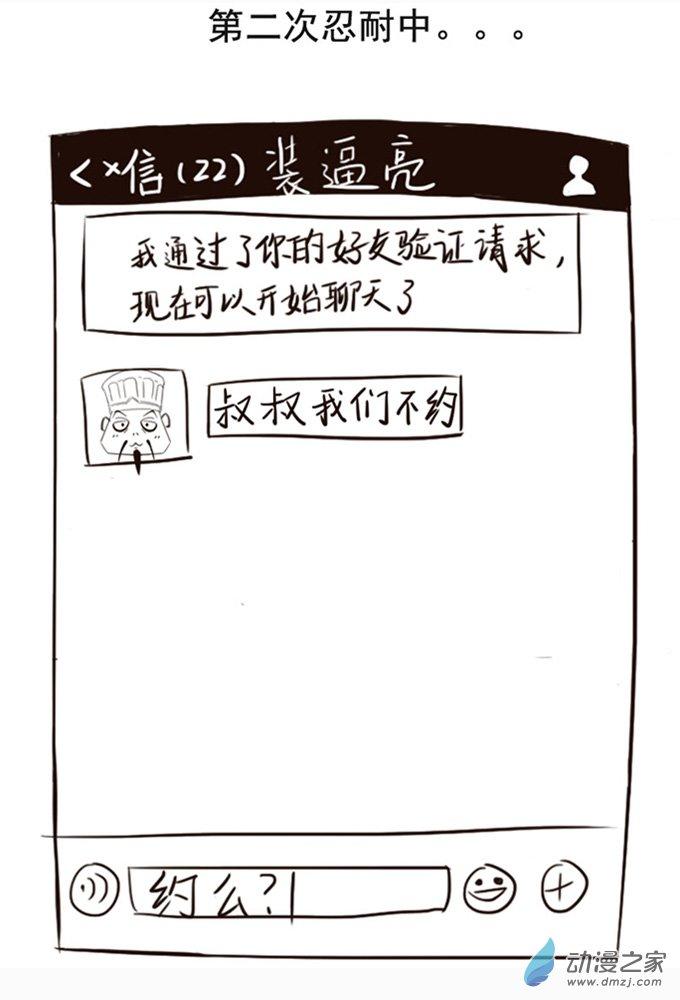 第二次忍耐中。。。
<x信(22) 装逼亮
我通过了你的好友验证请求，
现在可以开始聊天了
叔叔我们不约
约么?
动漫之家
www.dmzj.com